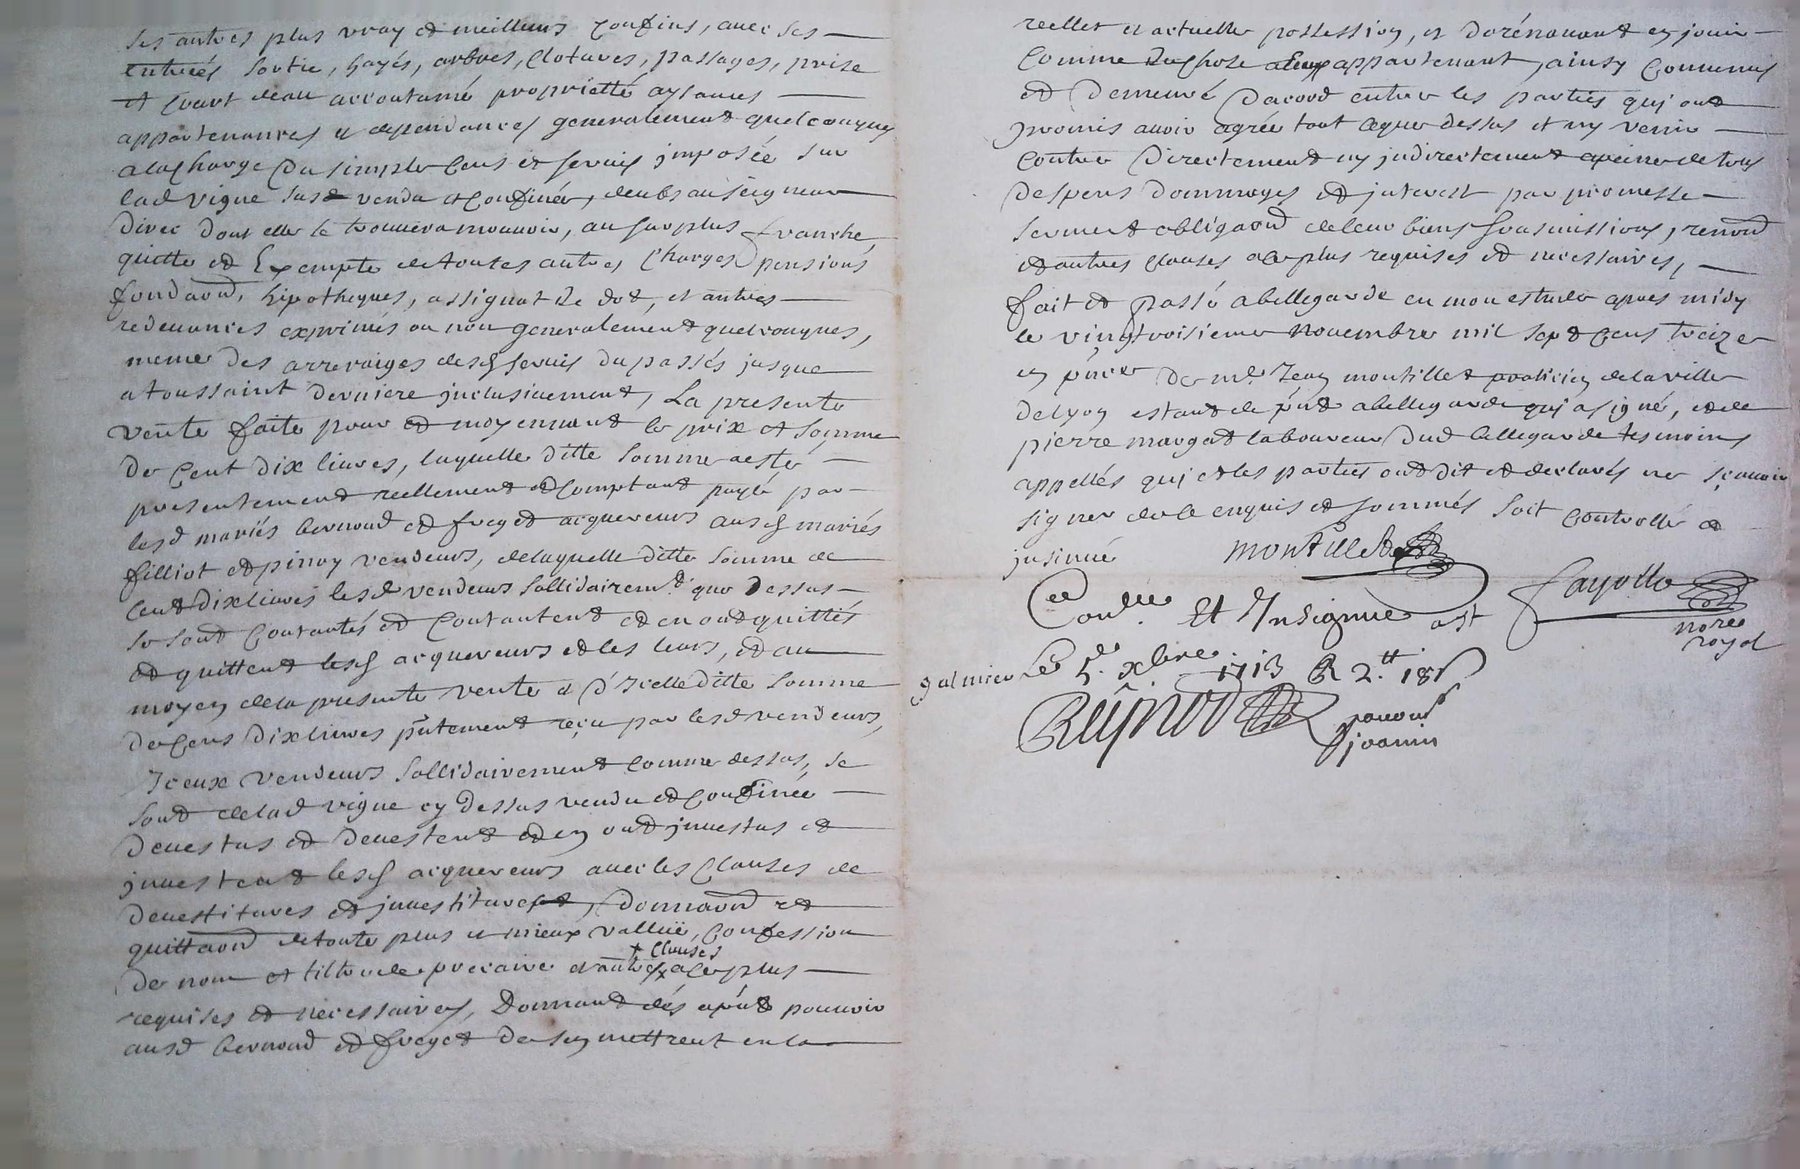 ses autres plus vray et meilleurs confins, avec ses
entrées sortie, hayés, arbres, clotures, passages, prise
et court deau accoutumé proprietté aysances
appartenances et dependances generalement quelconques
a la charge du simple cens et servis imposée sur
lad vigne susd vendu et confinée, deubs au seigneur
direc dont elle se trouvera mouvoir, au surplus franche,
quitte et Exempte de toutes autres charges pensions
fondaõn, hipotheques, assignat de dot, et autres
redevances exprimés ou non generalement quelconques,
meme des arreraiges desd servis du passés jusque
a toussaint derniere jnclusivement, La presente
vente faite pour et moyennant le prix et somme
de cent dix livres, laquelle ditte somme a esté
presentement reellement et comptant payée par
lesd mariés bernoud et freyet acquereurs ausd mariés
filliot et pinoy vendeurs, de laquelle ditte somme de
cent dix livres lesd vendeurs sollidairemt que dessus
se sont contantés et contantent et en ont quittés
et quittent lesd acquereurs et les leurs, et au
moyen de la presente vente et d'Icelle ditte somme
de cens dix livres pñtement reçu par lesd vendeurs,
Iceux vendeurs sollidairement comme dessus, se
sont de lad vigne cy dessus vendu et confinée
devestus et devestent et en ont jnvestus et
jnvestent lesd acquereurs avec les clauses de
devestitures et jnvestitures, donnaõn et
quittaõn de toute plus et mieux vallüe, confession
de nom et tiltre de precaire et autres + clauses a ce plus
requises et necessaires, Donnant dés apñt pouvoir
ausd bernoud et freyet de sen mettrent en la
reellet et actuelle possession, et dorénavant en jouir
comme de chose a leux appartenant, ainsy convenus
et demeuré dacord entre les parties quj ont
promis avoir agrée tout ceque dessus et ny venir
contre directement ny jndirectement a peine de tous
despens dommages et jnterest par promesse
serment obligaõn de leur biens sousmissions, renonõn
et autres clauses a ce plus requises et necessaires,
fait et passé a bellegarde en mon estude apres midy
le vingtroisieme novembre mil sept cens treize
en pñce de mr Jean montillet praticien de la ville
de lyon estant de pñt a bellegarde quj a signé, et de
pierre margat laboureur dud bellegarde tesmoins
appellés quj et les parties ont dit et declarés ne sçavoir
signer de ce enquis et sommés soit controllé et
jnsinué
montillet
fayolle
nore
royal
Conlle Et Insignue a st
galmier Le 5e xbre 1713 R 2tt 18s
Reynod
pavous
joannin